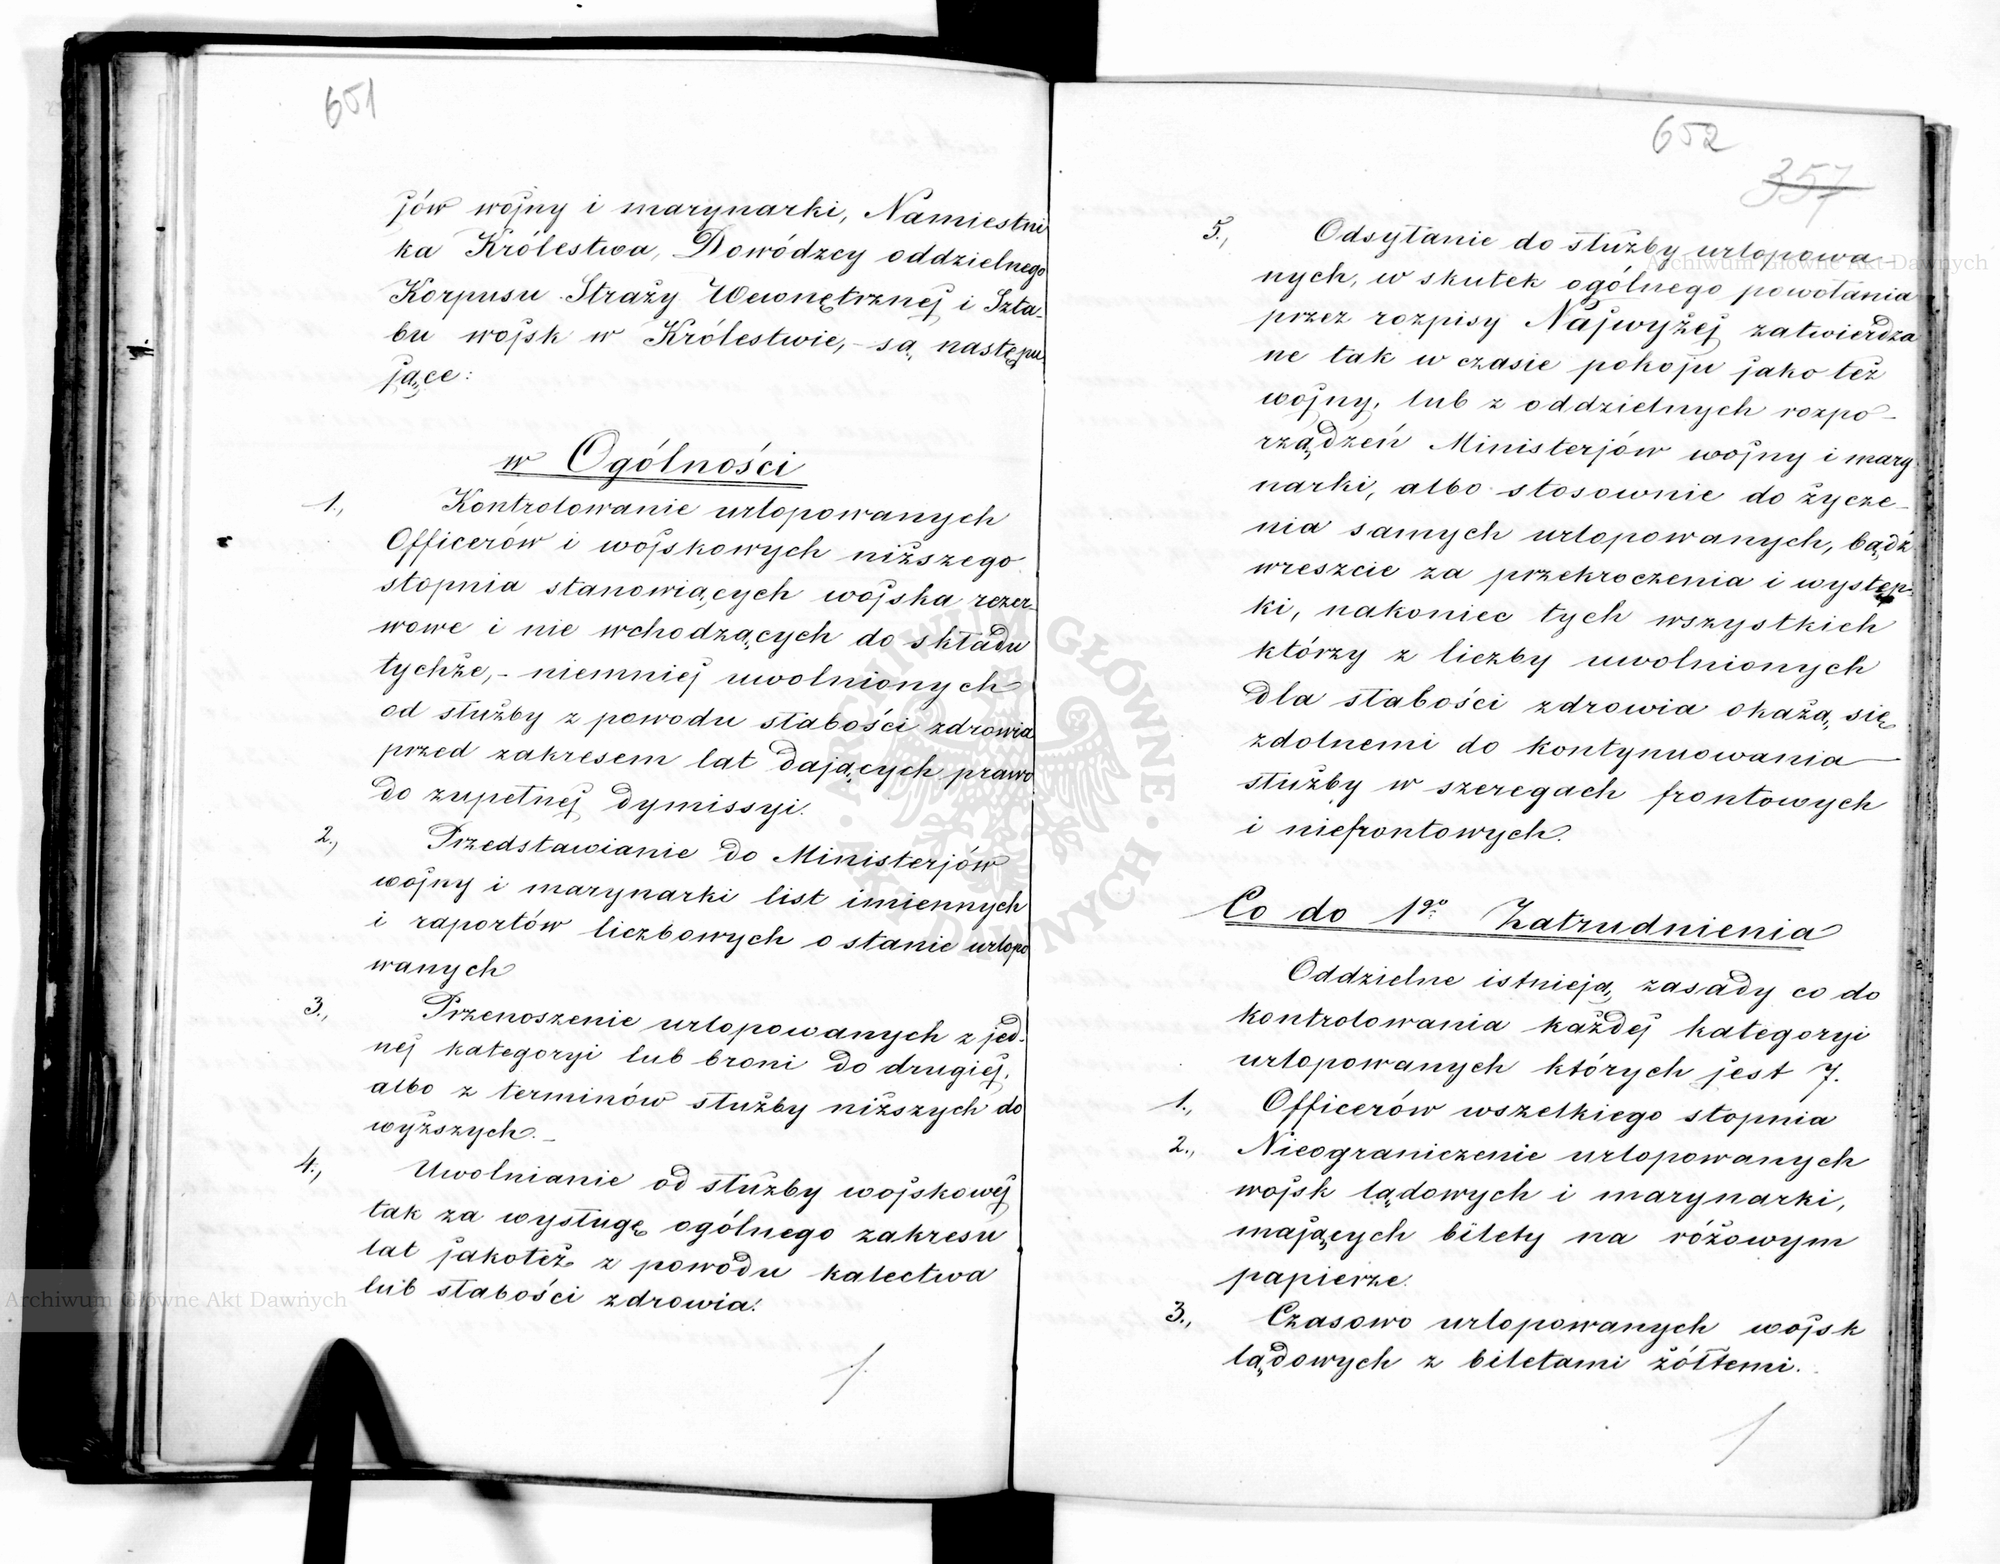 651
jów wojny i marynarki, Namiestni
ka Królestwa, Dowódzcy oddzielnego
Korpusu Straży Wewnętrznej i Szta-
bu wojsk w Królestwie,- są następu
jące:
w Ogólności
1., Kontrolowanie urlopowanych
Officerów i wojskowych niższego
stopnia stanowiących wojska rezer-
wowe i nie wchodzących do składu
tychże,- niemniej uwolnionych
od służby z powodu słabości zdrowia
przed zakresem lat dających prawo
do zupełnej dymissyi.
2., Przedstawianie do Ministerjów
wojny i marynarki list imiennych
i raportów liczbowych o stanie urlopo
wanych
3., Przenoszenie urlopowanych z jed-
nej kategoryi lub broni do drugiej,
albo z terminów służby niższych do
wyższych.-
4., Uwolnianie od służby wojskowej
tak za wysługę ogólnego zakresu
lat jakoteż z powodu kalectwa
lub słabości zdrowia.
652
357
5., Odsyłanie do służby urlopowa-
nych, w skutek ogólnego powołania
przez rozpisy Najwyżej zatwierdza
ne tak w czasie pokoju jako też
wojny, lub z oddzielnych rozpo-
rządzeń Ministerjów wojny i mary
narki, albo stosownie do życze-
nia samych urlopowanych, bądź
wreszcie za przekroczenia i występ-
ki, nakoniec tych wszystkich
którzy z liczby uwolnionych
dla słabości zdrowia okażą się
zdolnemi do kontynuowania
służby w szeregach frontowych
i niefrontowych.
Co do 1go Zatrudnienia
Oddzielne istnieją zasady co do
kontrolowania każdej kategoryi
urlopowanych których jest 7.
1., Officerów wszelkiego stopnia
2., Nieograniczenie urlopowanych
wojsk lądowych i marynarki,
mających bilety na różowym
papierze.
3., Czasowo urlopowanych wojsk
lądowych z biletami żółtemi.
Archiwum Główne Akt Dawnych
Archiwum Główne Akt Dawnych
ARCHIWUM GŁÓWNE AKT DAWNYCH